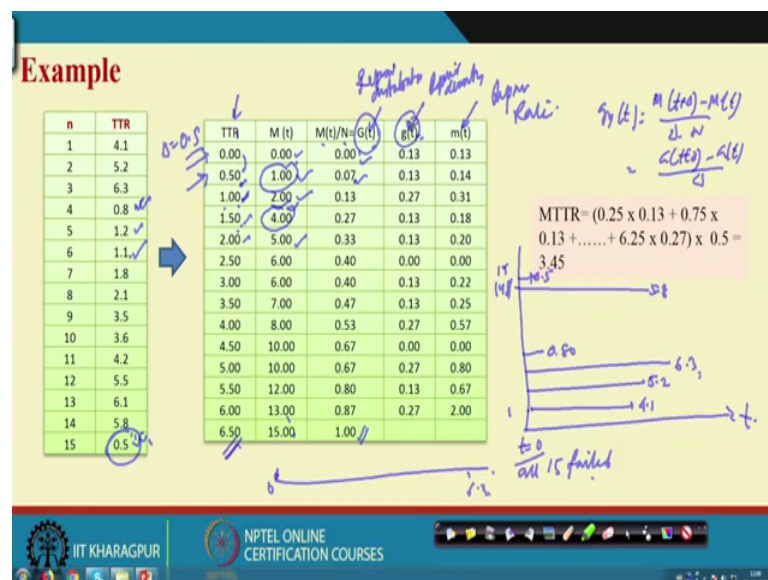 Example
n TTR
1 4.1
2 5.2
3 6.3
4 0.8
5 1.2
6 1.1
7 1.8
8 2.1
9 3.5
10 3.6
11 4.2
12 5.5
13 6.1
14 5.8
15 0.5
Δ=0.5
Repair Distribution
Repair density
Repair Rate.
TTR M (t) M(t)/N= G(t) g(t) m(t)
0.00 0.00 0.00 0.13 0.13
0.50 1.00 0.07 0.13 0.14
1.00 2.00 0.13 0.27 0.31
1.50 4.00 0.27 0.13 0.18
2.00 5.00 0.33 0.13 0.20
2.50 6.00 0.40 0.00 0.00
3.00 6.00 0.40 0.13 0.22
3.50 7.00 0.47 0.13 0.25
4.00 8.00 0.53 0.27 0.57
4.50 10.00 0.67 0.00 0.00
5.00 10.00 0.67 0.27 0.80
5.50 12.00 0.80 0.13 0.67
6.00 13.00 0.87 0.27 2.00
6.50 15.00 1.00
g(t): M(t+Δ)-M(t)
Δ. N
= G(t+Δ) - G(t)
Δ
MTTR= (0.25 x 0.13 + 0.75 x
0.13 +......+ 6.25 x 0.27) x 0.5 =
3.45
15 0.5
14 5.8
0.80
6.3
5.2
1 4.1
t.
t=0
all 15 failed
0 6.3
IIT KHARAGPUR
NPTEL ONLINE
CERTIFICATION COURSES